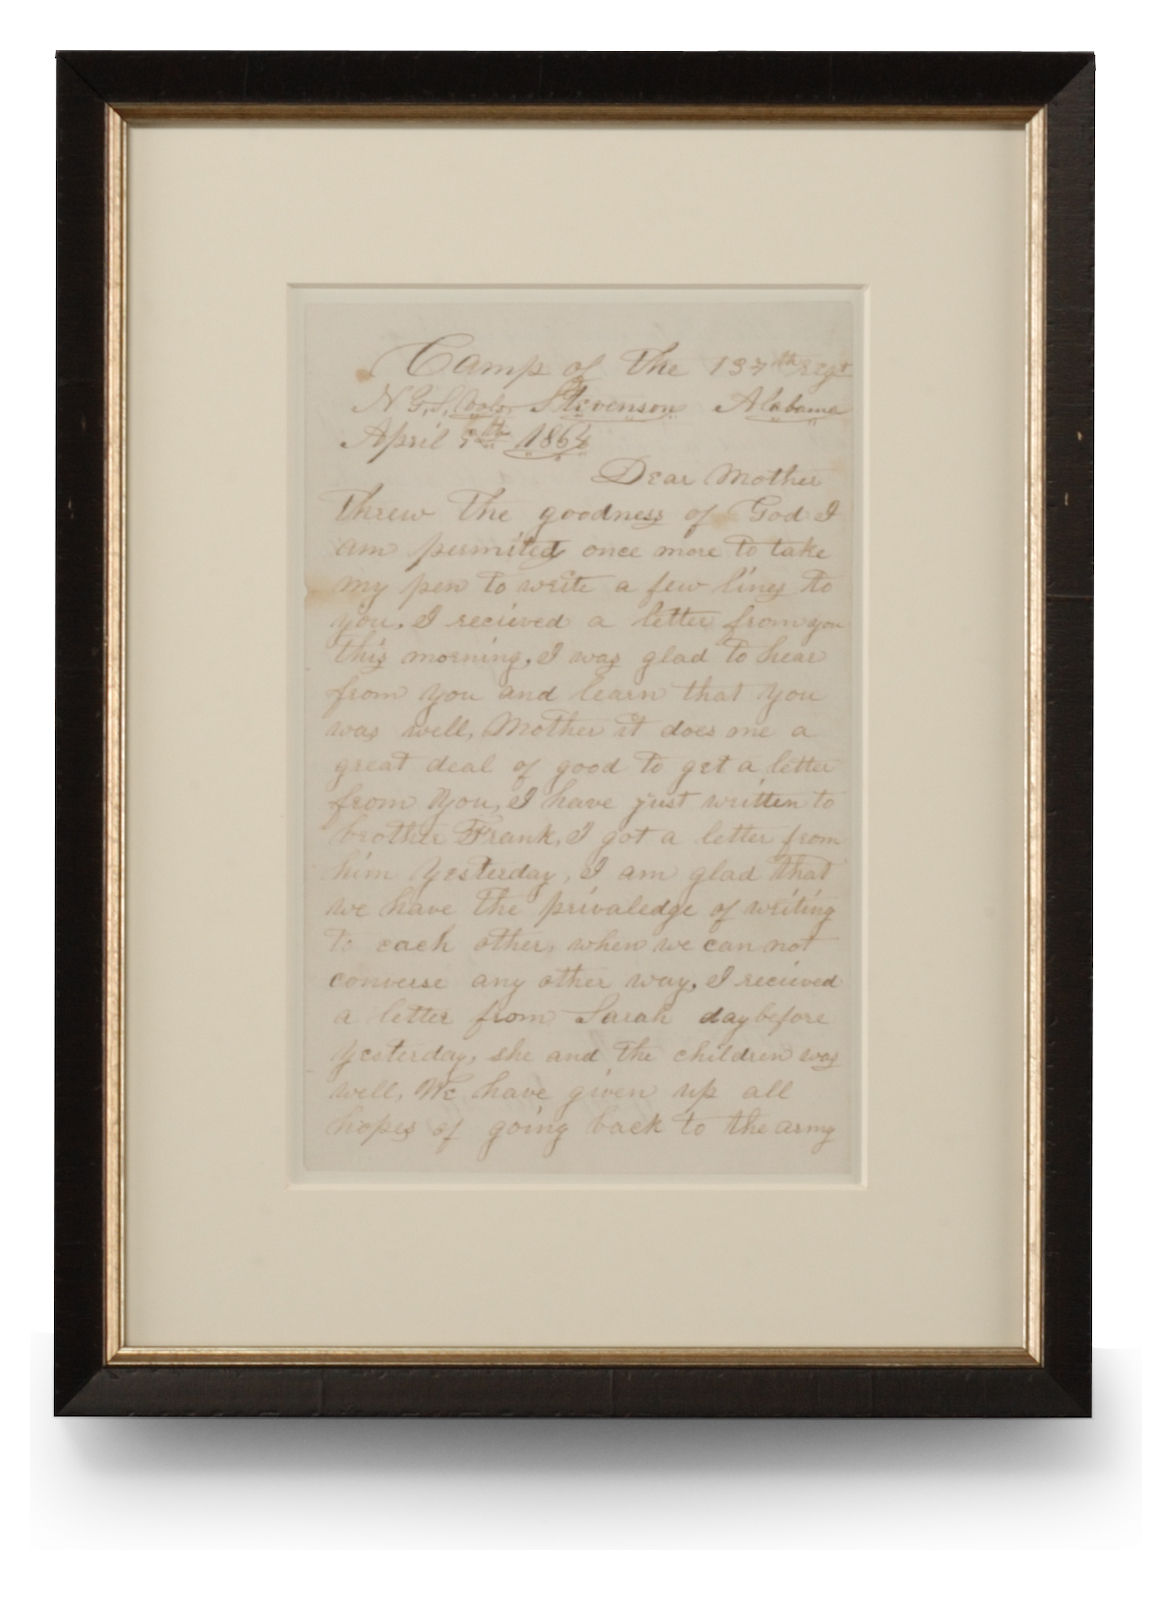 Camp of the 137th regt
N.Y.S. Vols. Stevenson Alabama
April 9th 1864
Dear Mother
Threw The goodness of God I
am permited once more to take
my pen to write a few lines to
you. I recieved a letter from you
this morning, I was glad to hear
from you and learn that you
was well, Mother it does me a
great deal of good to get a letter
from you, I have just written to
brother Frank, I got a letter from
him yesterday, I am glad that
we have the privaledge of writing
to each other, when we can not
converse any other way, I recieved
a letter from Sarah day before
yesterday, she and the children was
well, We have given up all
hopes of going back to the army